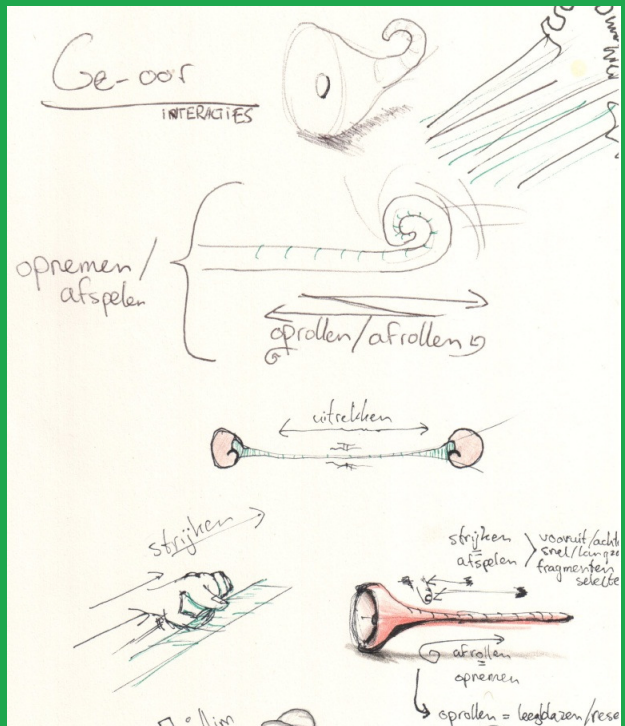 Ge-oor
INTERACTIES
opnemen/
afspelen
oprollen/afrollen
uitrekken
strijken
strijken
=
afspelen
vooruit/acht
snel/langza
fragmenten
selecte
afrollen
=
opnemen
oprollen = leegblazen/rese